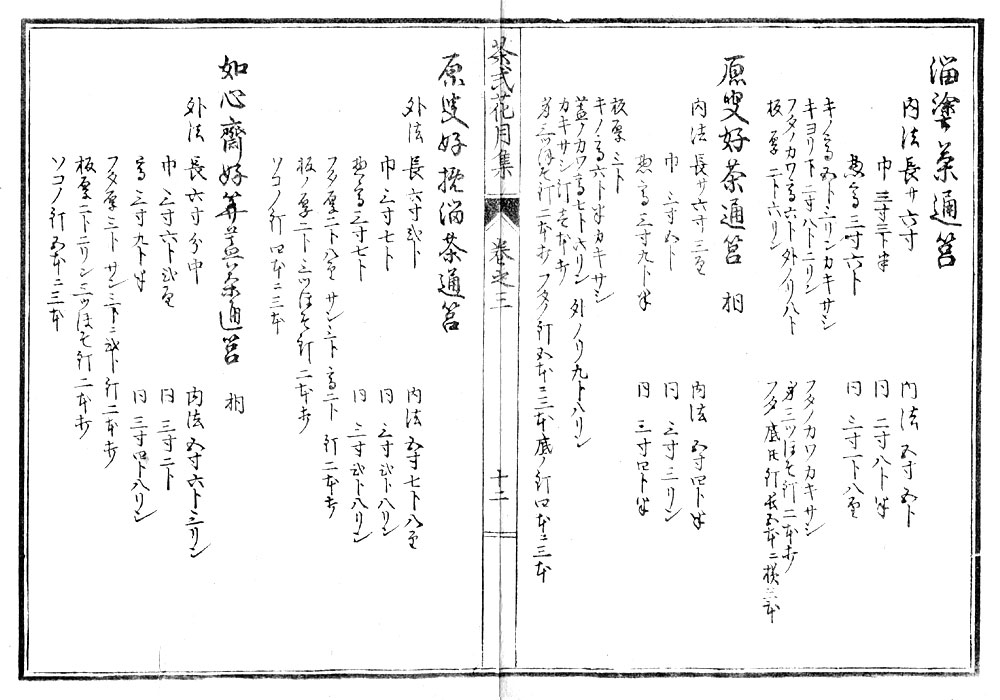 溜塗茶通筥
内法 長サ六寸 内法 五寸五ト
巾 三寸三ト半 同 二寸八ト半
惣高 三寸六ト 同 三寸一ト八厘
キノ高五ト三リンカキサシ フタノカワカキサシ
キヨリ下二寸八ト二リン 身三ツほそ釘二本ツヽ
フタノカワ高六ト外ノリ八ト フタ底共釘長五本ニ横三本
板厚二ト六リン
原叟好茶通筥 桐
内法 長サ六寸三厘 内法 五寸四ト半
巾 三寸五ト 同 三寸三リン
惣高 三寸九ト半 同 三寸四ト半
板厚三ト
キノ高六ト半カキサシ
蓋ノカワ高七ト六リン 外ノリ九ト八リン
カキサシ釘壱本ツヽ
身三ツほそ釘二本ツヽ フタノ釘五本ニ三本 底ノ釘四本ニ三本
茶式花月集 巻之三 十二
原叟好 溜茶通筥
外法 長六寸弐ト 内法 五寸七ト八厘
巾 三寸七ト 同 三寸弐ト八リン
惣高 三寸七ト 同 三寸弐ト八リン
フタ厚二ト八厘 サン三ト高二ト 釘二本ツヽ
板ノ厚二ト 三ツほそ釘二本ツヽ
ソコノ釘四本ニ三本
如心齋好 蓋茶通筥 桐
外法 長六寸分中 内法 五寸六ト三リン
巾 三寸六ト弐厘 同 三寸二ト
高 三寸九ト半 同 三寸四ト八リン
フタ厚三ト サン三ト二弐ト 釘二本ツヽ
板厚二ト二リン三ツほそ釘二本ツヽ
ソコノ釘五本ニ三本